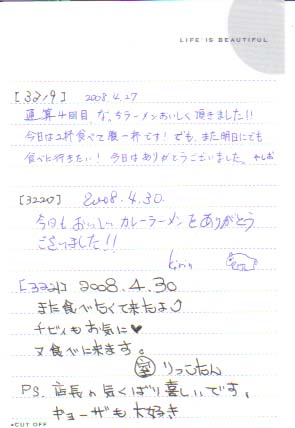 LIFE IS BEAUTIFUL
[3219] 2008.4.27
通算4回目 なっちラーメンおいしく頂きました!!
今日は2杯食べて腹一杯です! でも、また明日にでも
食べに行きたい! 今日はありがとうございました。やしお
[3220] 2008.4.30.
今日もおいしいカレーラーメンをありがとう
ございました!!
kirin
[3221] 2008.4.30
また食べたくて来たよ
チビィもお気に♥
又食べに来ます。
りっこたん
P.S. 店長の気くばり嬉しいです。
ギョーザも大好き
CUT OFF